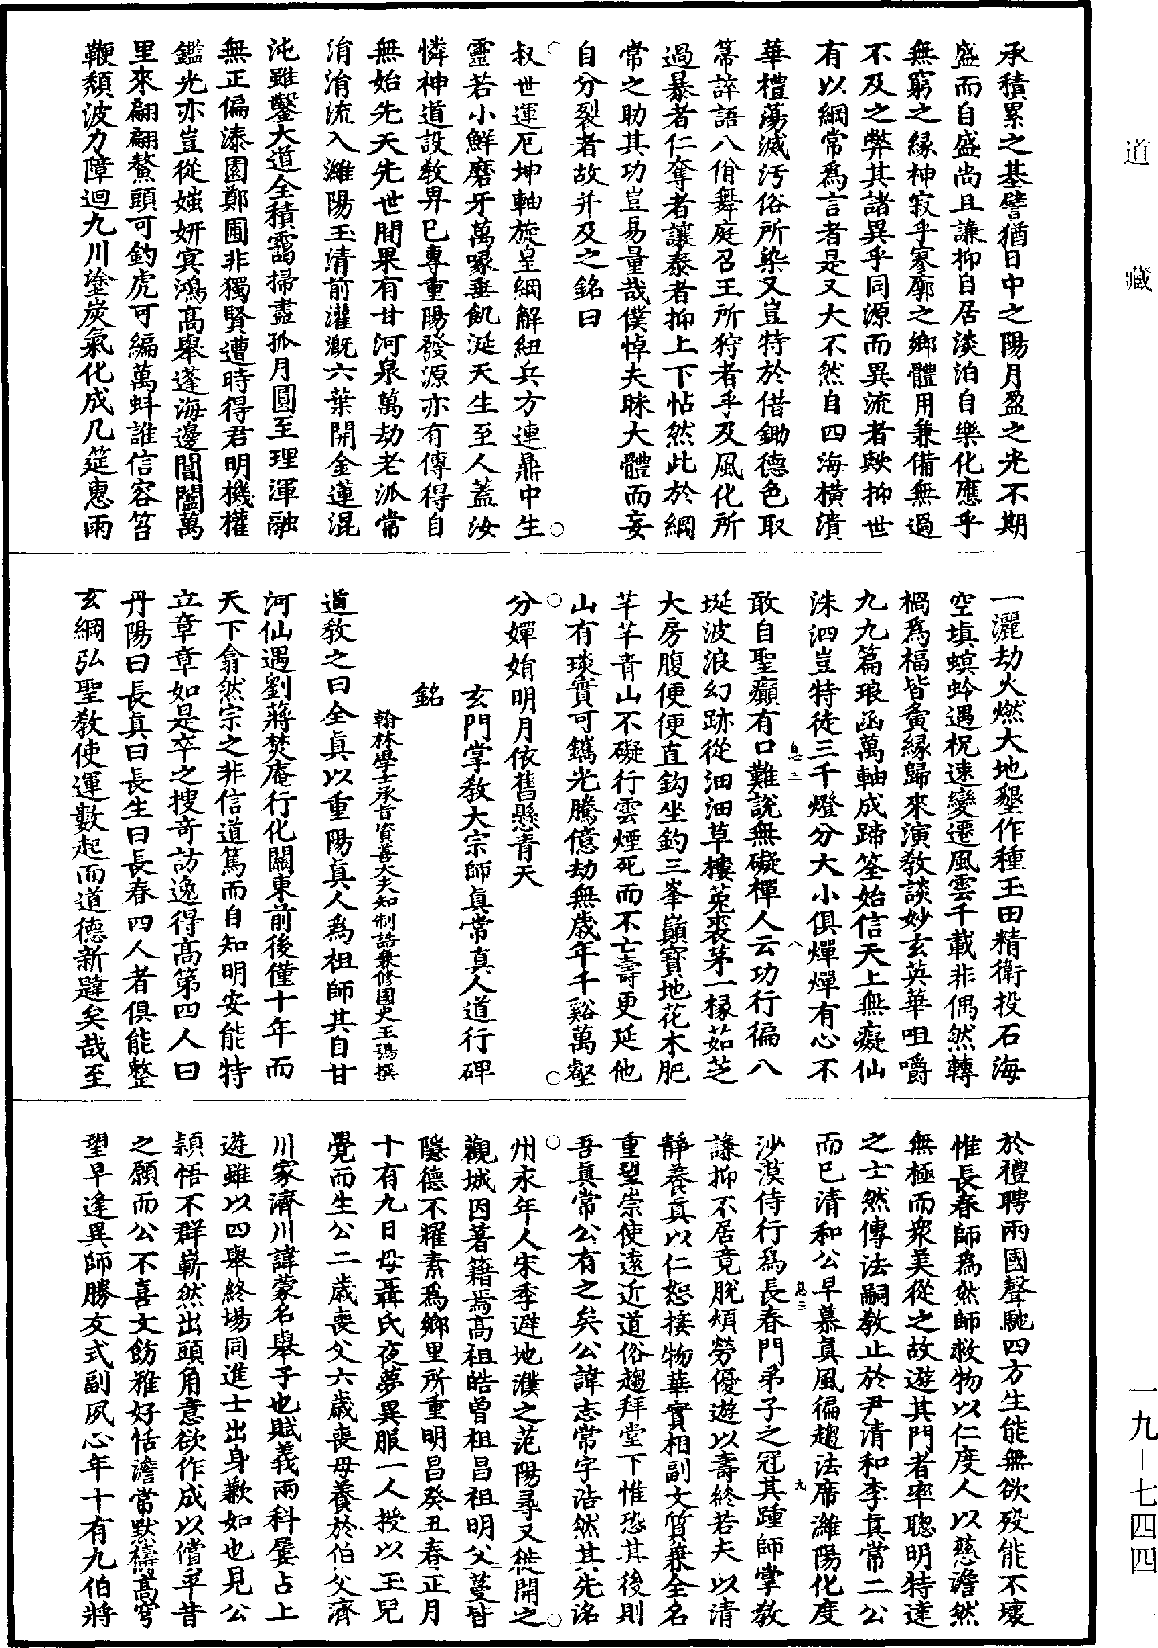 道藏
承積累之基譬猶日中之陽月盈之光不期
盛而自盛尚且謙抑自居淡泊自樂化應乎
無窮之緣神寂乎寥廓之鄉體用兼備無過
不及之弊其諸異乎同源而異流者歟抑世
有以綱常爲言者是又大不然自四海橫潰
華禮蕩滅污俗所染又豈特於借鋤德色取
箒誶語八佾舞庭召王所狩者乎及風化所
過暴者仁奪者讓泰者抑上下怗然此於綱
常之助其功豈易量哉僕悼夫昧大體而妄
自分裂者故并及之銘曰
叔世運厄坤軸旋皇綱解紐兵方連鼎中生
靈若小鮮磨牙萬喙垂飢涎天生至人蓋汝
憐神道設教畀已專重陽發源亦有傳得自
無始先天先世間果有甘河泉萬劫老派常
涓涓流入濰陽玉清前灌溉六葉開金蓮混
沌雖鑿大道全積靄掃盡孤月圓至理渾融
無正偏漆園鄭圃非獨賢遭時得君明機權
鑑光亦豈從媸妍冥鴻高舉蓬海邊閶闔萬
里來翩翩鰲頭可釣虎可編萬蚌誰信容笞
鞭頹波力障迴九川塗炭氣化成几筵惠雨
一灑劫火燃大地墾作種玉田精衛投石海
空塡螟蛉遇祝速變遷風雲千載非偶然轉
禍爲福皆夤緣歸來演教談妙玄英華咀嚼
九九篇琅函萬軸成蹄筌始信天上無癡仙
洙泗豈特徒三千燈分大小俱燀燀有心不
敢自聖癲有口難說無礙禪人云功行徧八
埏波浪幻跡從沺沺草樓菟裘茅一椽茹芝
大房腹便便直鈎坐釣三峯巔寶地花木肥
芊芊青山不礙行雲煙死而不亡壽更延他
山有琰實可鐫光騰億劫無歲年千谿萬壑
分嬋娟明月依舊懸青天
玄門掌教大宗師眞常真人道行碑
銘
翰林學士承旨資善大夫知制誥兼修國史王鶚撰
道教之曰全眞以重陽眞人爲祖師其自甘
河仙遇劉蔣焚庵行化關東前後僅十年而
天下翕然宗之非信道篤而自知明安能特
立章章如是卒之搜奇訪逸得高第四人曰
丹陽曰長真曰長生曰長春四人者俱能整
玄綱弘聖教使運數起而道德新韙矣哉至
於禮聘兩國聲馳四方生能無欲歿能不壞
惟長春師爲然師救物以仁度人以慈澹然
無極而衆美從之故遊其門者率聰明特達
之士然傳法嗣教止於尹清和李真常二公
而已清和公早慕真風徧趨法席濰陽化度
沙漠侍行爲長春門弟子之冠其踵師掌教
謙抑不居竟脫煩勞優遊以壽終若夫以清
靜養真以仁恕接物華實相副文質兼全名
重望崇使遠近道俗趨拜堂下惟恐其後則
吾真常公有之矣公諱志常字浩然其先洺
州永年人宋季避地濮之范陽尋又徙開之
觀城因著籍焉高祖皓曾祖昌祖明父蔓皆
隱德不耀素爲鄉里所重明昌癸丑春正月
十有九日母聶氏夜夢異服一人授以玉兒
覺而生公二歲喪父六歲喪母養於伯父濟
川家濟川諱蒙名舉子也賦義兩科屢占上
遊雖以四舉終場同進士出身歉如也見公
穎悟不群嶄然出頭角意欲作成以償平昔
之願而公不喜文飾雅好恬澹常默禱高穹
望早逢異師勝友式副夙心年十有九伯將
一九—七四四